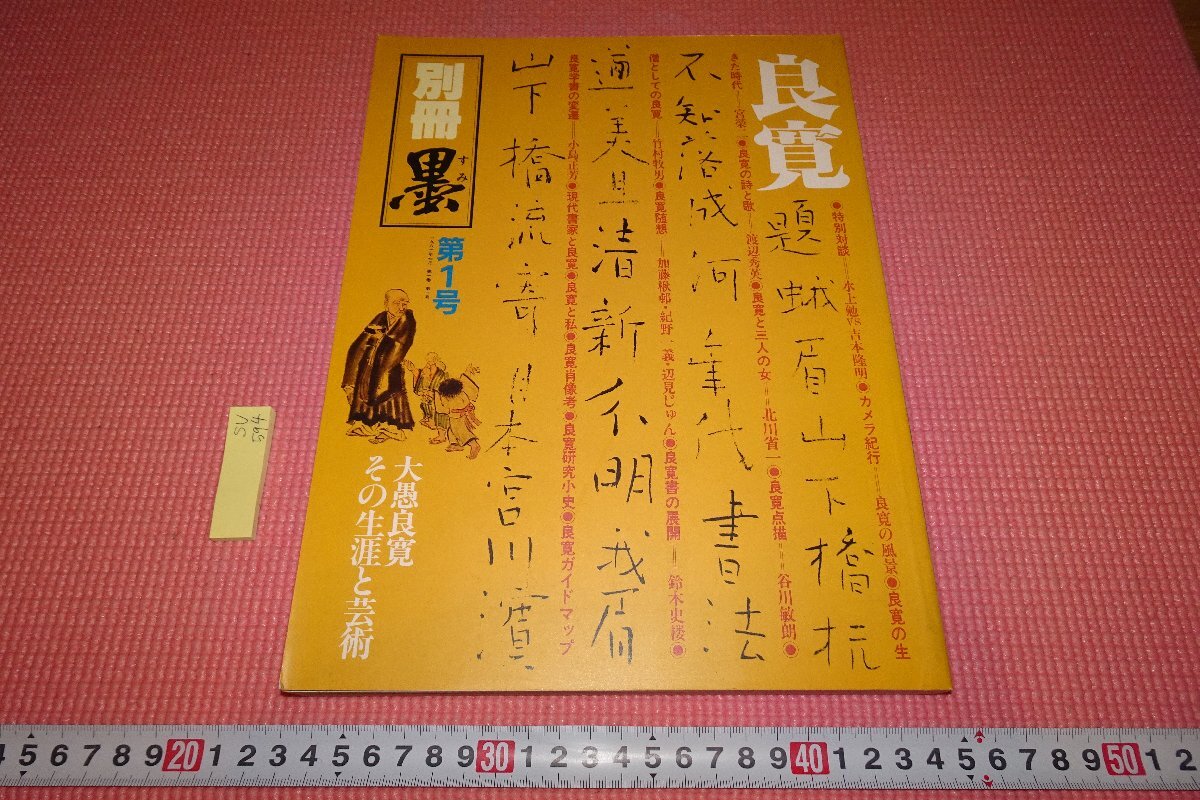 良寛
●特別対談＝水上勉VS吉本隆明●カメラ紀行＝良寛の風景●良寛の生
きた時代＝宮榮二●良寛の詩と歌＝渡辺秀英●良寛と三人の女＝北川省一●良寛点描＝谷川敏朗●
僧としての良寛＝竹村牧男●良寛随想＝加藤楸邨・紀野一義・辺見じゅん●良寛書の展開＝鈴木史楼●
良寛学書の変遷＝小島正芳●現代書家と良寛●良寛と私●良寛肖像考●良寛研究小史●良寛ガイドマップ
題蛾眉山下橋杭
不知落成何年代書法
遒美且清新分明我眉
山下橋流寄日本宮川濱
別冊
墨
すみ
第1号
大愚良寛
その生涯と芸術
SV
594
4 5 6 7 8 9 20 1 2 3 4 5 6 7 8 9 30 1 2 3 4 5 6 7 8 9 40 1 2 3 4 5 6 7 8 9 50 1 2